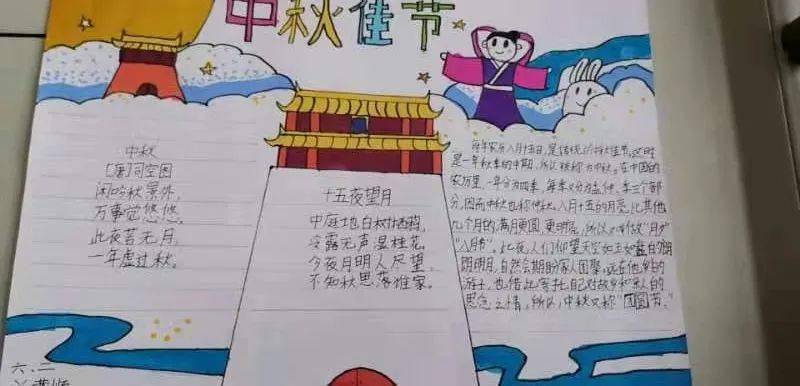 中秋佳节
中秋
[唐]司空图
闲吟秋景外,
万事觉悠悠。
此夜若无月,
一年虚过秋。
十五夜望月
中庭地白树栖鸦,
冷露无声湿桂花。
今夜月明人尽望,
不知秋思落谁家。
每年农历八月十五日,是传统的中秋佳节,这时
是一年秋季的中期,所以被称为中秋。在中国的
农历里,一年分为四季,每季又分孟、仲、季三个部
分,因而中秋也称仲秋。八月十五的月亮比其他
几个月的满月更圆,更明亮,所以又叫做"月夕"
"八月节"。此夜,人们仰望天空如玉如盘的朗
朗明月,自然会期盼家人团聚,远在他乡的
游子,也借此寄托自己对故乡和亲人的
思念之情,所以,中秋又称"团圆节。"
六、二